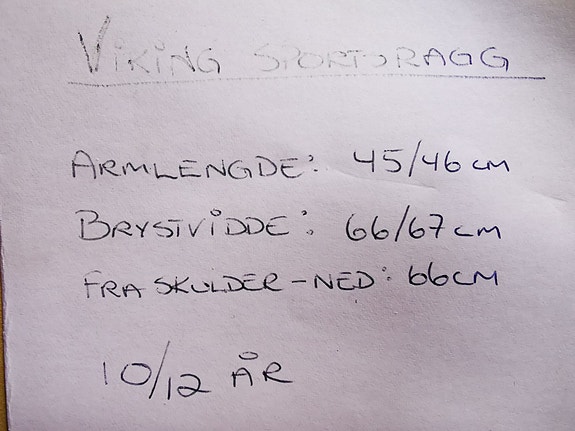 VIKING SPORTSRAGG
ARMLENGDE: 45/46 CM
BRYSTVIDDE: 66/67 CM
FRA SKULDER-NED: 66CM
10/12 ÅR